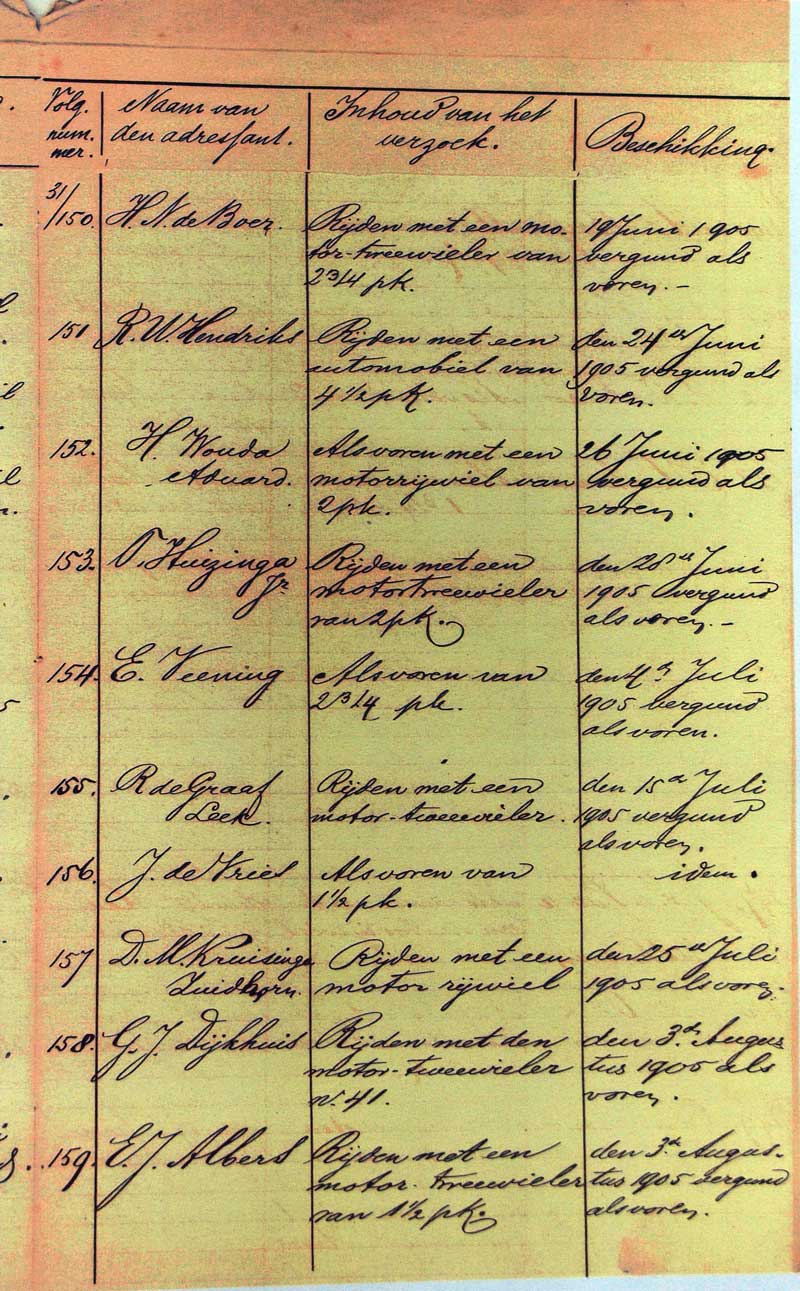 Volg.
num-
mer.
Naam van
den adressant.
Inhoud van het
verzoek.
Beschikking.
31/150.
H. N. de Boer.
Rijden met een mo-
tor-tweewieler van
2 3/4 pk.
19 Juni 1905
vergund als
voren.-
151
R. W. Hendriks
Rijden met een
automobiel van
4 1/2 pk.
den 24en Juni
1905 vergund als
voren.
152.
H. Wouda
Aduard.
Als voren met een
motorrijwiel van
2 pk.
26 Juni 1905
vergund als
voren.
153.
Huizinga
Jr
Rijden met een
motortweewieler
van 2 pk.
den 28en Juni
1905 vergund
als voren.-
154.
E. Veening
Als voren van
2 3/4 pk.
den 4en Juli
1905 vergund
als voren.
155.
R de Graaf
Leek.
Rijden met een
motor-tweewieler.
den 15en Juli
1905 vergund
als voren.
156.
J. de Vries
Als voren van
1 1/2 pk.
idem.
157
D. M. Kruisinga
Zuidhorn.
Rijden met een
motor rijwiel
den 25en Juli
1905 als voren.
158.
G. J. Dijkhuis
Rijden met den
motor-tweewieler
No. 41.
den 3en Augus
tus 1905 als
voren.
159.
E. J. Albers
Rijden met een
motor-tweewieler
van 1 1/2 pk.
den 3en Augus-
tus 1905 vergund
als voren.